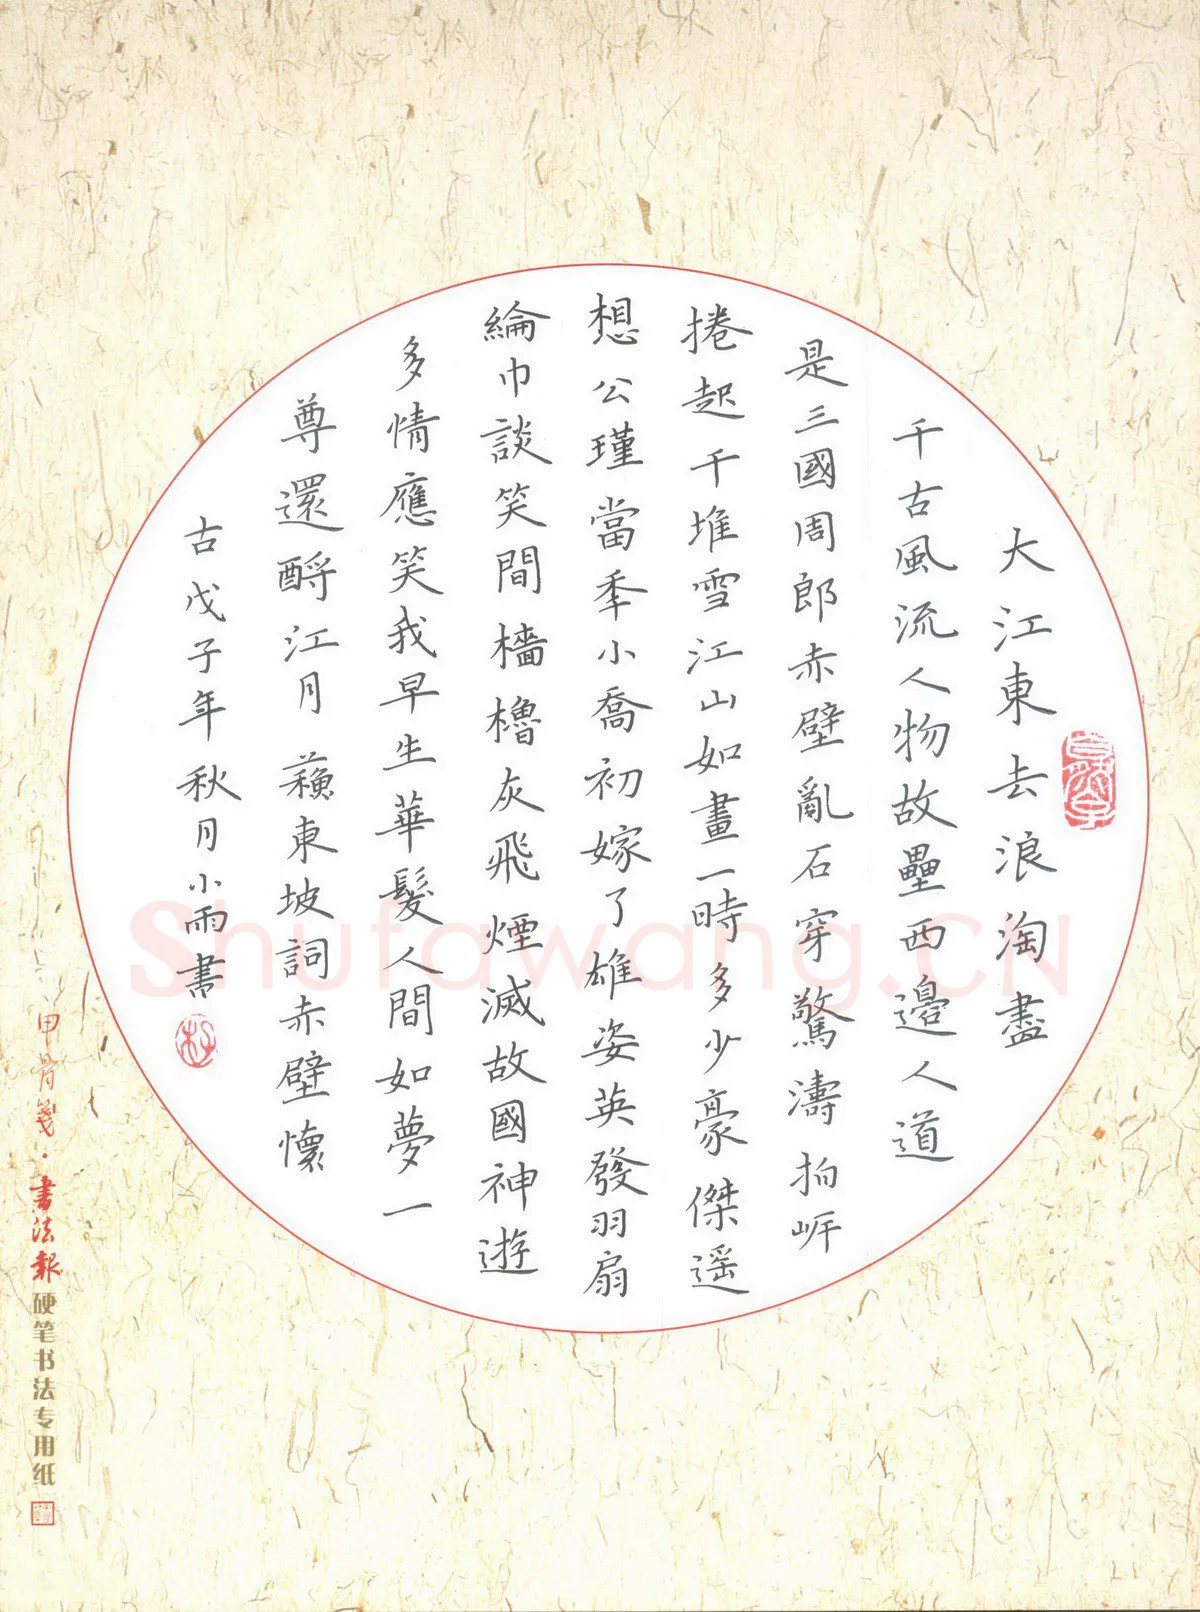 大江東去浪淘盡
千古風流人物故壘西邊人道
是三國周郎赤壁亂石穿驚濤拍岍
捲起千堆雪江山如畫一時多少豪傑遥
想公瑾當秊小喬初嫁了雄姿英發羽扇
綸巾談笑間檣櫓灰飛煙滅故國神遊
多情應笑我早生華髮人間如夢一
尊還酹江月 蘓東坡詞赤壁懷
古戊子年秋月小雨書
甲骨笺·書法報硬笔书法专用纸
Shufawang.CN